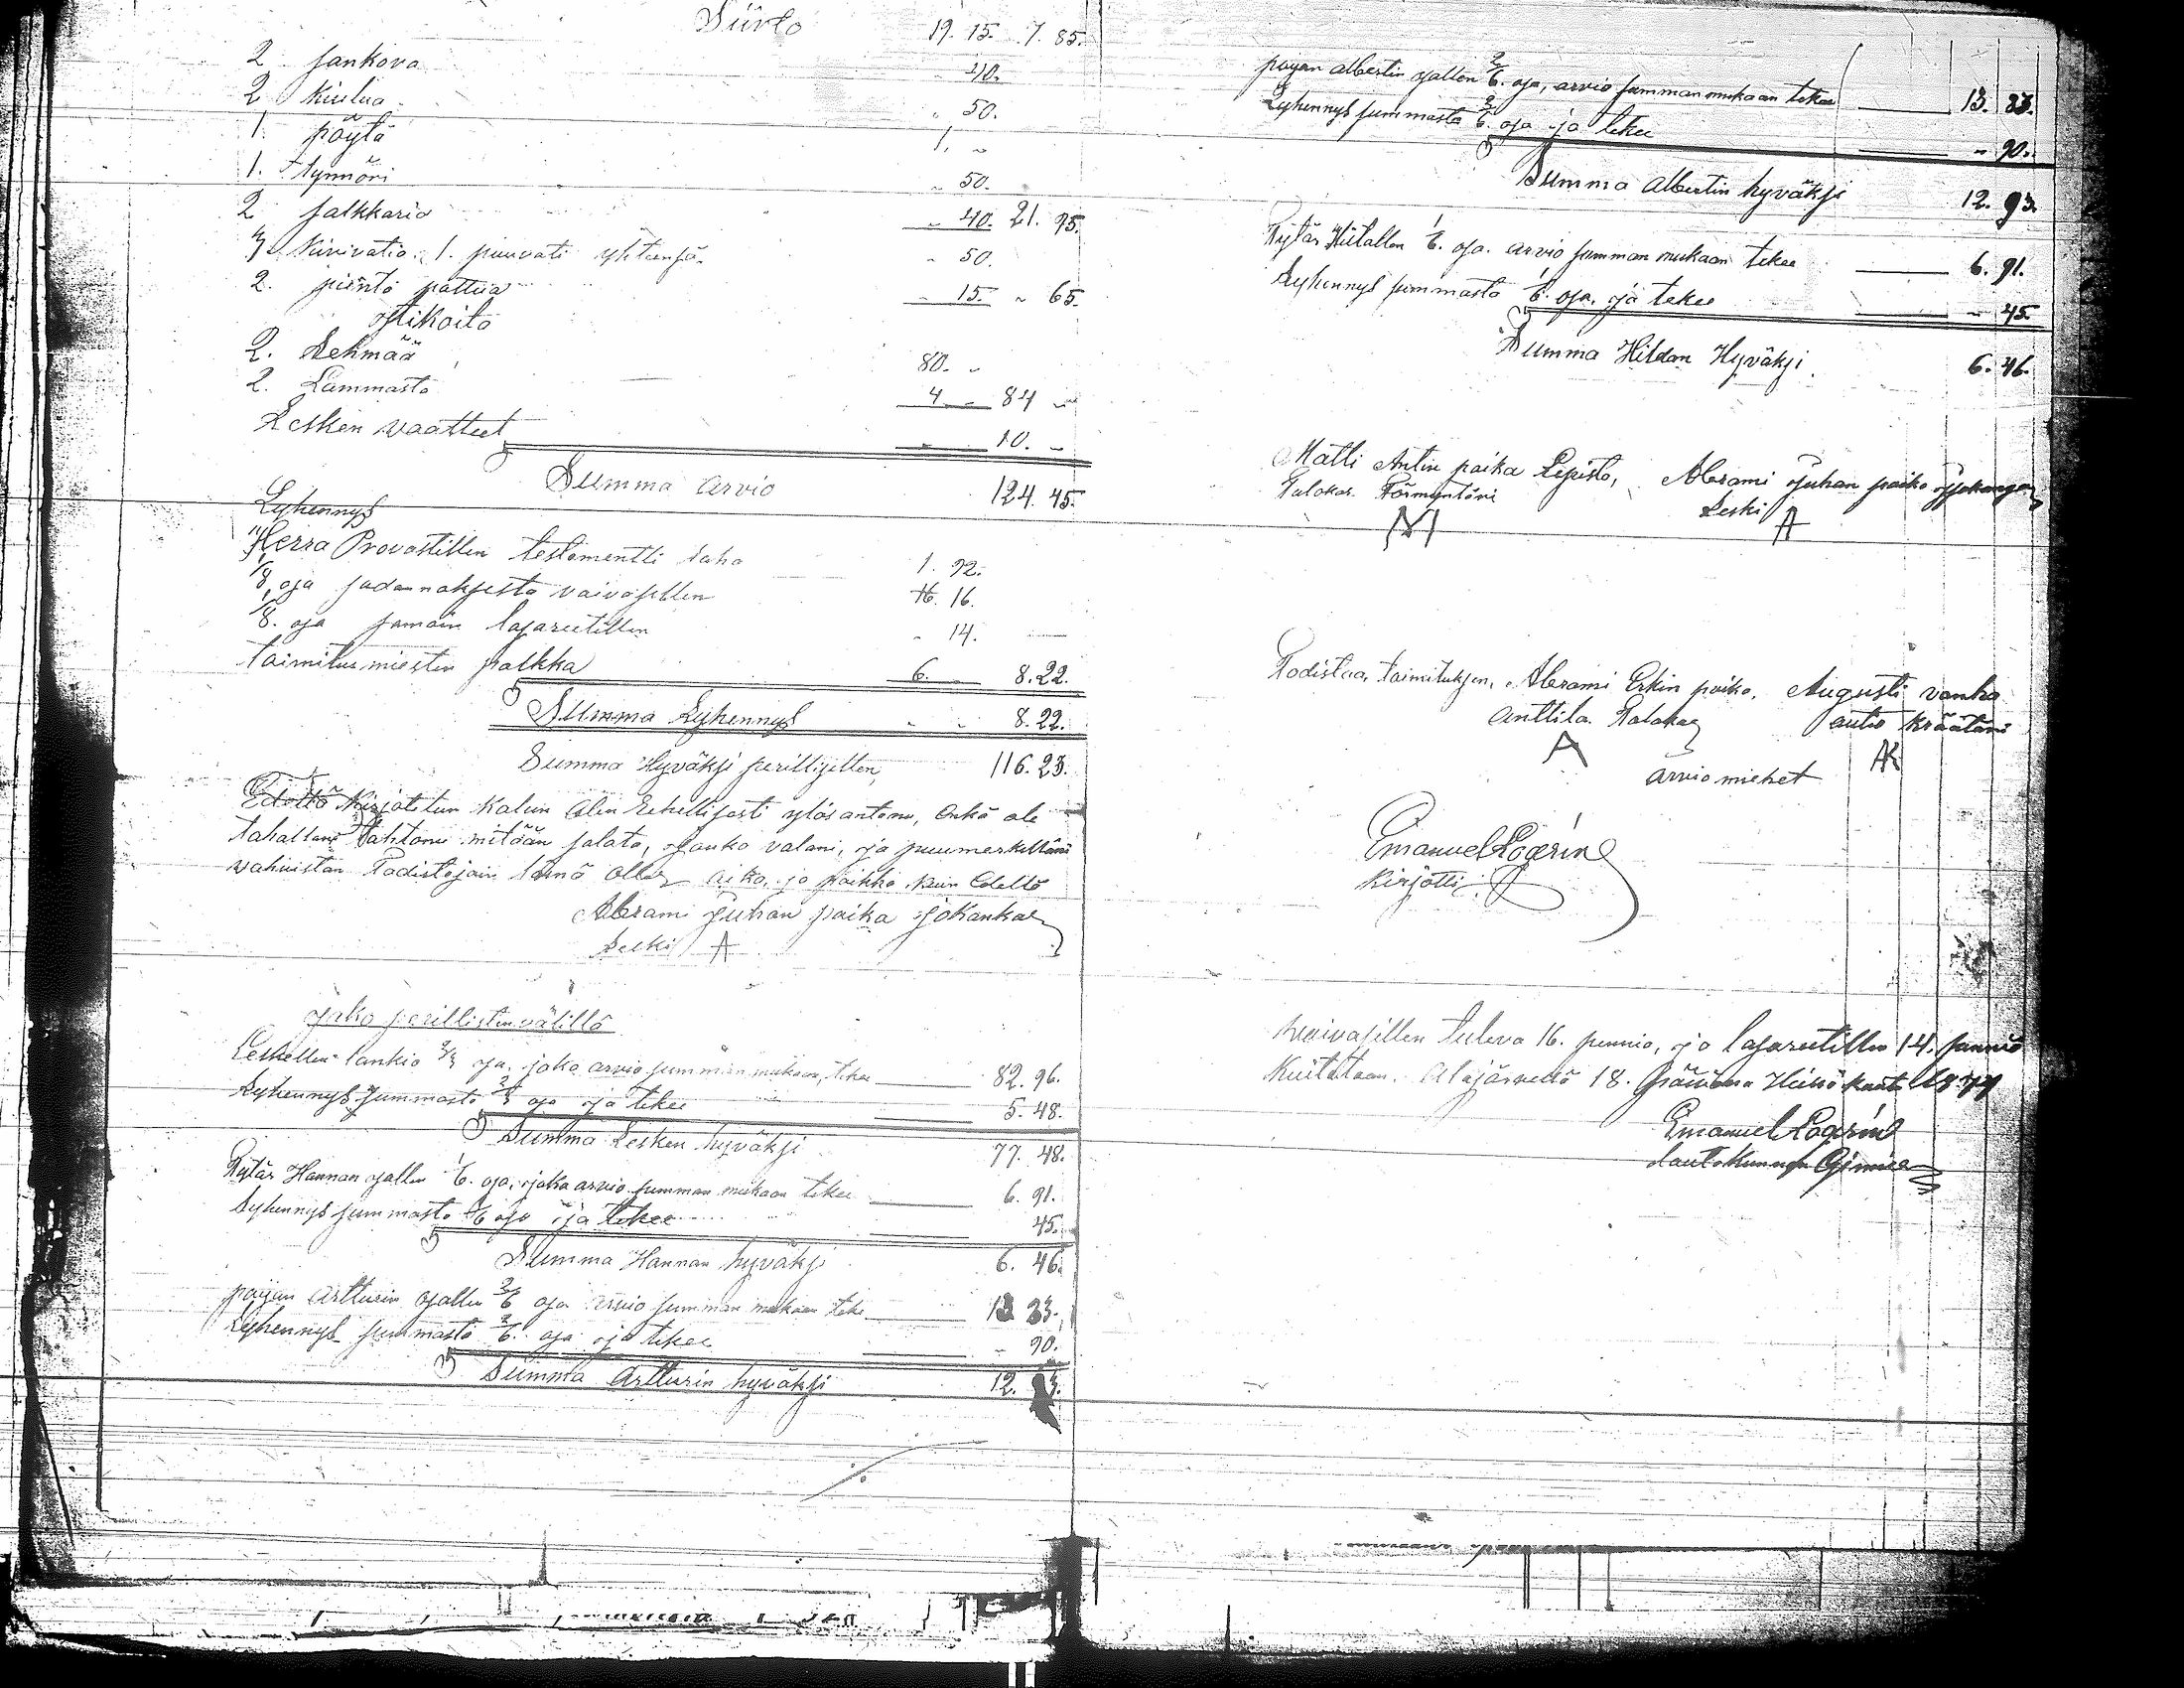 Siirto 19. 15. 7. 85.
2 sankova " 40.
2 kiulua " 50.
1. pöytä 1, "
1. tynnöri " 50.
2 jalkkaria " 40. 21. 95.
4 kivivatia. 1. puuvati yhteensä. " 50.
2. pientä pattua " 15. " 65.
Otikoita
2. Lehmää 80. "
2. Lammasta 4 " 84 "
Lesken vaatteet " 10. "
Summa arvio 124. 45.
Lyhennys
Herra Provastillen testamentti raha 1. 92.
1/8 osa sadannaksesta vaivasillen 16.
1/8. osa samoin lasareetillen " 14.
toimitus miesten palkka 6. " 8. 22.
Summa Lyhennys " " 8. 22.
Summa Hyväksi perillisillen 116. 23.
Edellä kirjoitetun kalun olen rehellisesti ylös antanu, enkä ole
tahallani tahtonu mitään salata, jonka valani, ja puumerkilläni
vahvistan Todistajain läsnä ollen aika ja paikka kuin Edellä
Abrami Juhan paika Jokankaan
Leski A
Jako perillisten välillä
Leskellen lankia 2/3 osa, joka arvio summan mukaan, tekee 82. 96.
Lyhennys Summasta 2/3 osa ja tekee 5. 48.
Summa Lesken hyväksi 77. 48.
Tytär Hannan osallen 1/6. osa, joka arvio summan mukaan tekee 6. 91.
Lyhennys summasta 1/6 osa ja tekee 45.
Summa Hannan hyväksi 6. 46.
pojan Artturin osallen 2/6 osa arvio summan mukaan teke 13 83.
Lyhennys summasta 2/6. osa ja tekee " 90.
Summa Artturin hyväksi 12.
pojan Albertin osallen 2/6. osa, arvio summan mukaan tekee 13. 83.
Lyhennys summasta 2/6. osa ja tekee " 90.
Summa Albertin hyväksi 12. 93.
Tytär Hiltallen 1/6. osa. arvio summan mukaan tekee 6. 91.
Lyhennys summasta 1/6. osa. ja tekee " 45.
Summa Hildan Hyväksi 6. 46.
Matti Antin poika Lepistö, Abrami Juhan paika Jokangan
Talokas. Förmyntöri Leski
M A
Todistaa toimituksen, Abrami Erkin poika, Augusti vanha
Anttila Talokas autio kräätäri
A AK
Arvio miehet
Emanuel Rosrin
Kirjotti
Waivasillen tuleva 16. penniä, ja lasareetillen 14. penniä
Kuitataan. Alajärvellä 18. päivänä Heinä kuuta 1877
Emanuel Rosrin
lautakunnan Esimies